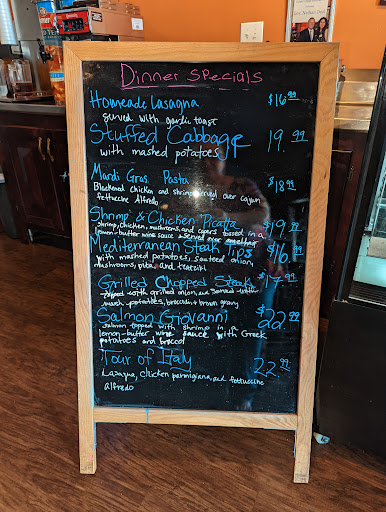 Dinner Specials
Homeade Lasagna $16.99
served with garlic toast
Stuffed Cabbage 19.99
with mashed potatoes
Mardi Gras Pasta $18.99
Blackened chicken and shrimp served over cajun
fettuccine Alfredo
Shrimp & Chicken Picatta $19.99
shrimp, chicken, mushrooms, and capers tossed in a
lemon-butter wine sauce served over
Mediterranean Steak Tips $16.99
with mashed potatoes, sauteed onion,
mushrooms, pita, and tzatziki
Grilled Chopped Steak $17.99
topped with grilled onion, and served with
mash potatoes, broccoli & brown gravy
Salmon Giovanni $22.99
salmon topped with shrimp in a
lemon-butter wine sauce with Greek
potatoes and broccoli
Tour of Italy 22.99
Lasagna, chicken parmigiana, and fettuccine
alfredo